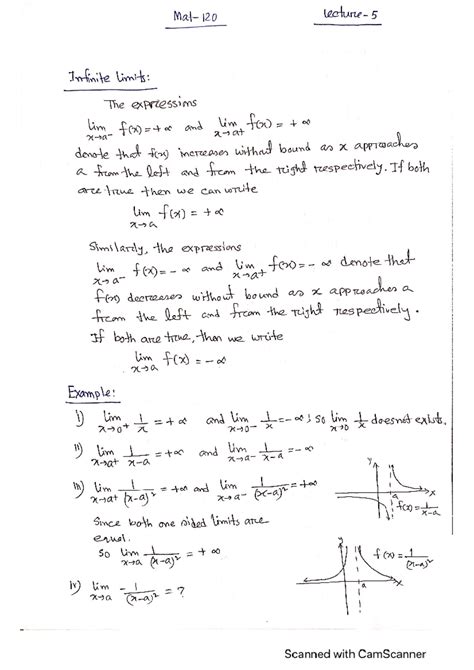 Mat-120
Lecture-5
Infinite Limits:
The expressions
lim x→a- f(x) = +∞ and lim x→a+ f(x) = +∞
denote that f(x) increases without bound as x approaches
a from the left and from the right respectively. If both
are true then we can write
lim x→a f(x) = +∞
Similarly, the expressions
lim x→a- f(x) = -∞ and lim x→a+ f(x) = -∞ denote that
f(x) decreases without bound as x approaches a
from the left and from the right respectively.
If both are true, then we write
lim x→a f(x) = -∞
Example:
i) lim x→0+ 1/x = +∞ and lim x→0- 1/x = -∞; so lim x→0 1/x doesnot exists.
ii) lim x→a+ 1/(x-a) = +∞ and lim x→a- 1/(x-a) = -∞
iii) lim x→a+ 1/(x-a)² = +∞ and lim x→a- 1/(x-a)² = +∞
y
a
x
f(x) = 1/(x-a)
Since both one sided limits are
equal.
so lim x→a 1/(x-a)² = +∞
y
f(x) = 1/(x-a)²
a
x
iv) lim x→a -1/(x-a)² = ?
Scanned with CamScanner